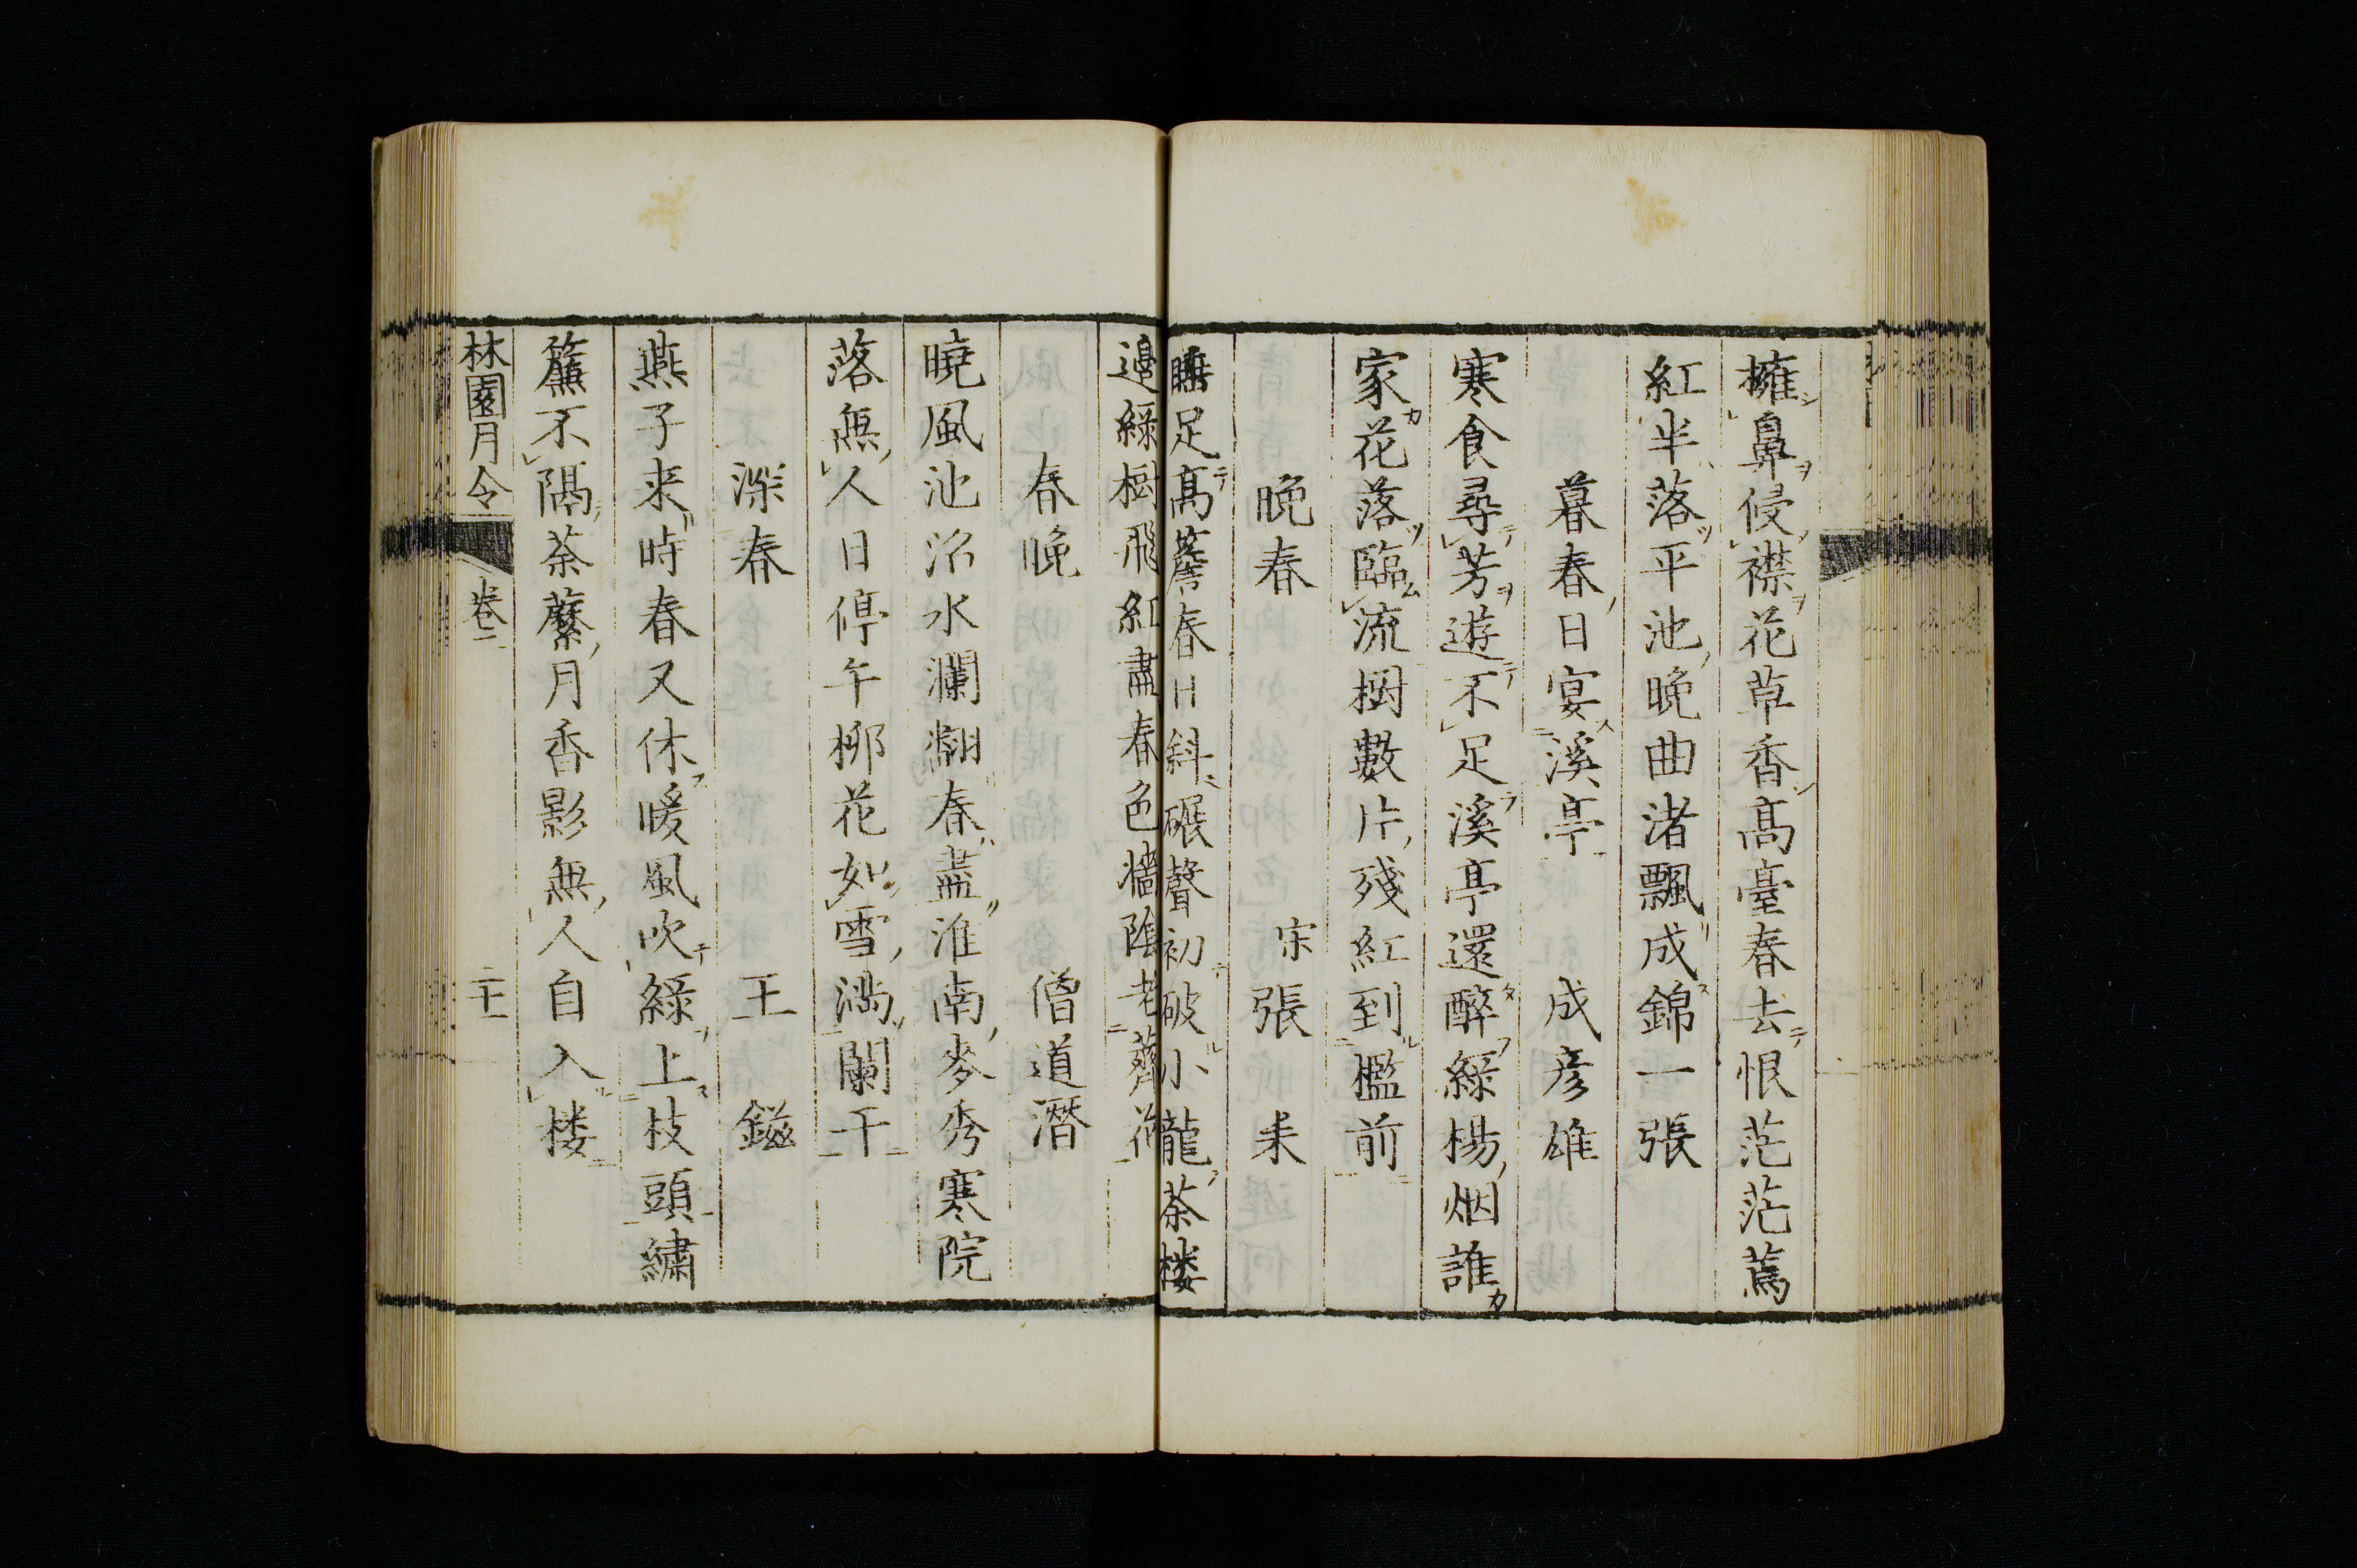 擁鼻侵襟花草香高臺春去恨茫茫蔫
紅半落平池晚曲渚飄成錦一張
暮春日宴溪亭 成彥雄
寒食尋芳遊不足溪亭還醉綠楊烟誰
家花落臨流樹數片殘紅到檻前
晚春 宋張耒
睡足高簷春日斜碾聲初破小龍茶楼
邉綠樹飛紅盡春色牆陰老薺花
春晚 僧道潛
曉風池沼水瀾翻春盡淮南麥秀寒院
落無人日停午柳花如雪滿闌干
深春 王鎡
燕子来時春又休暖風吹綠上枝頭繡
簾不隔荼蘼月香影無人自入楼
林園月令 卷二 二十一